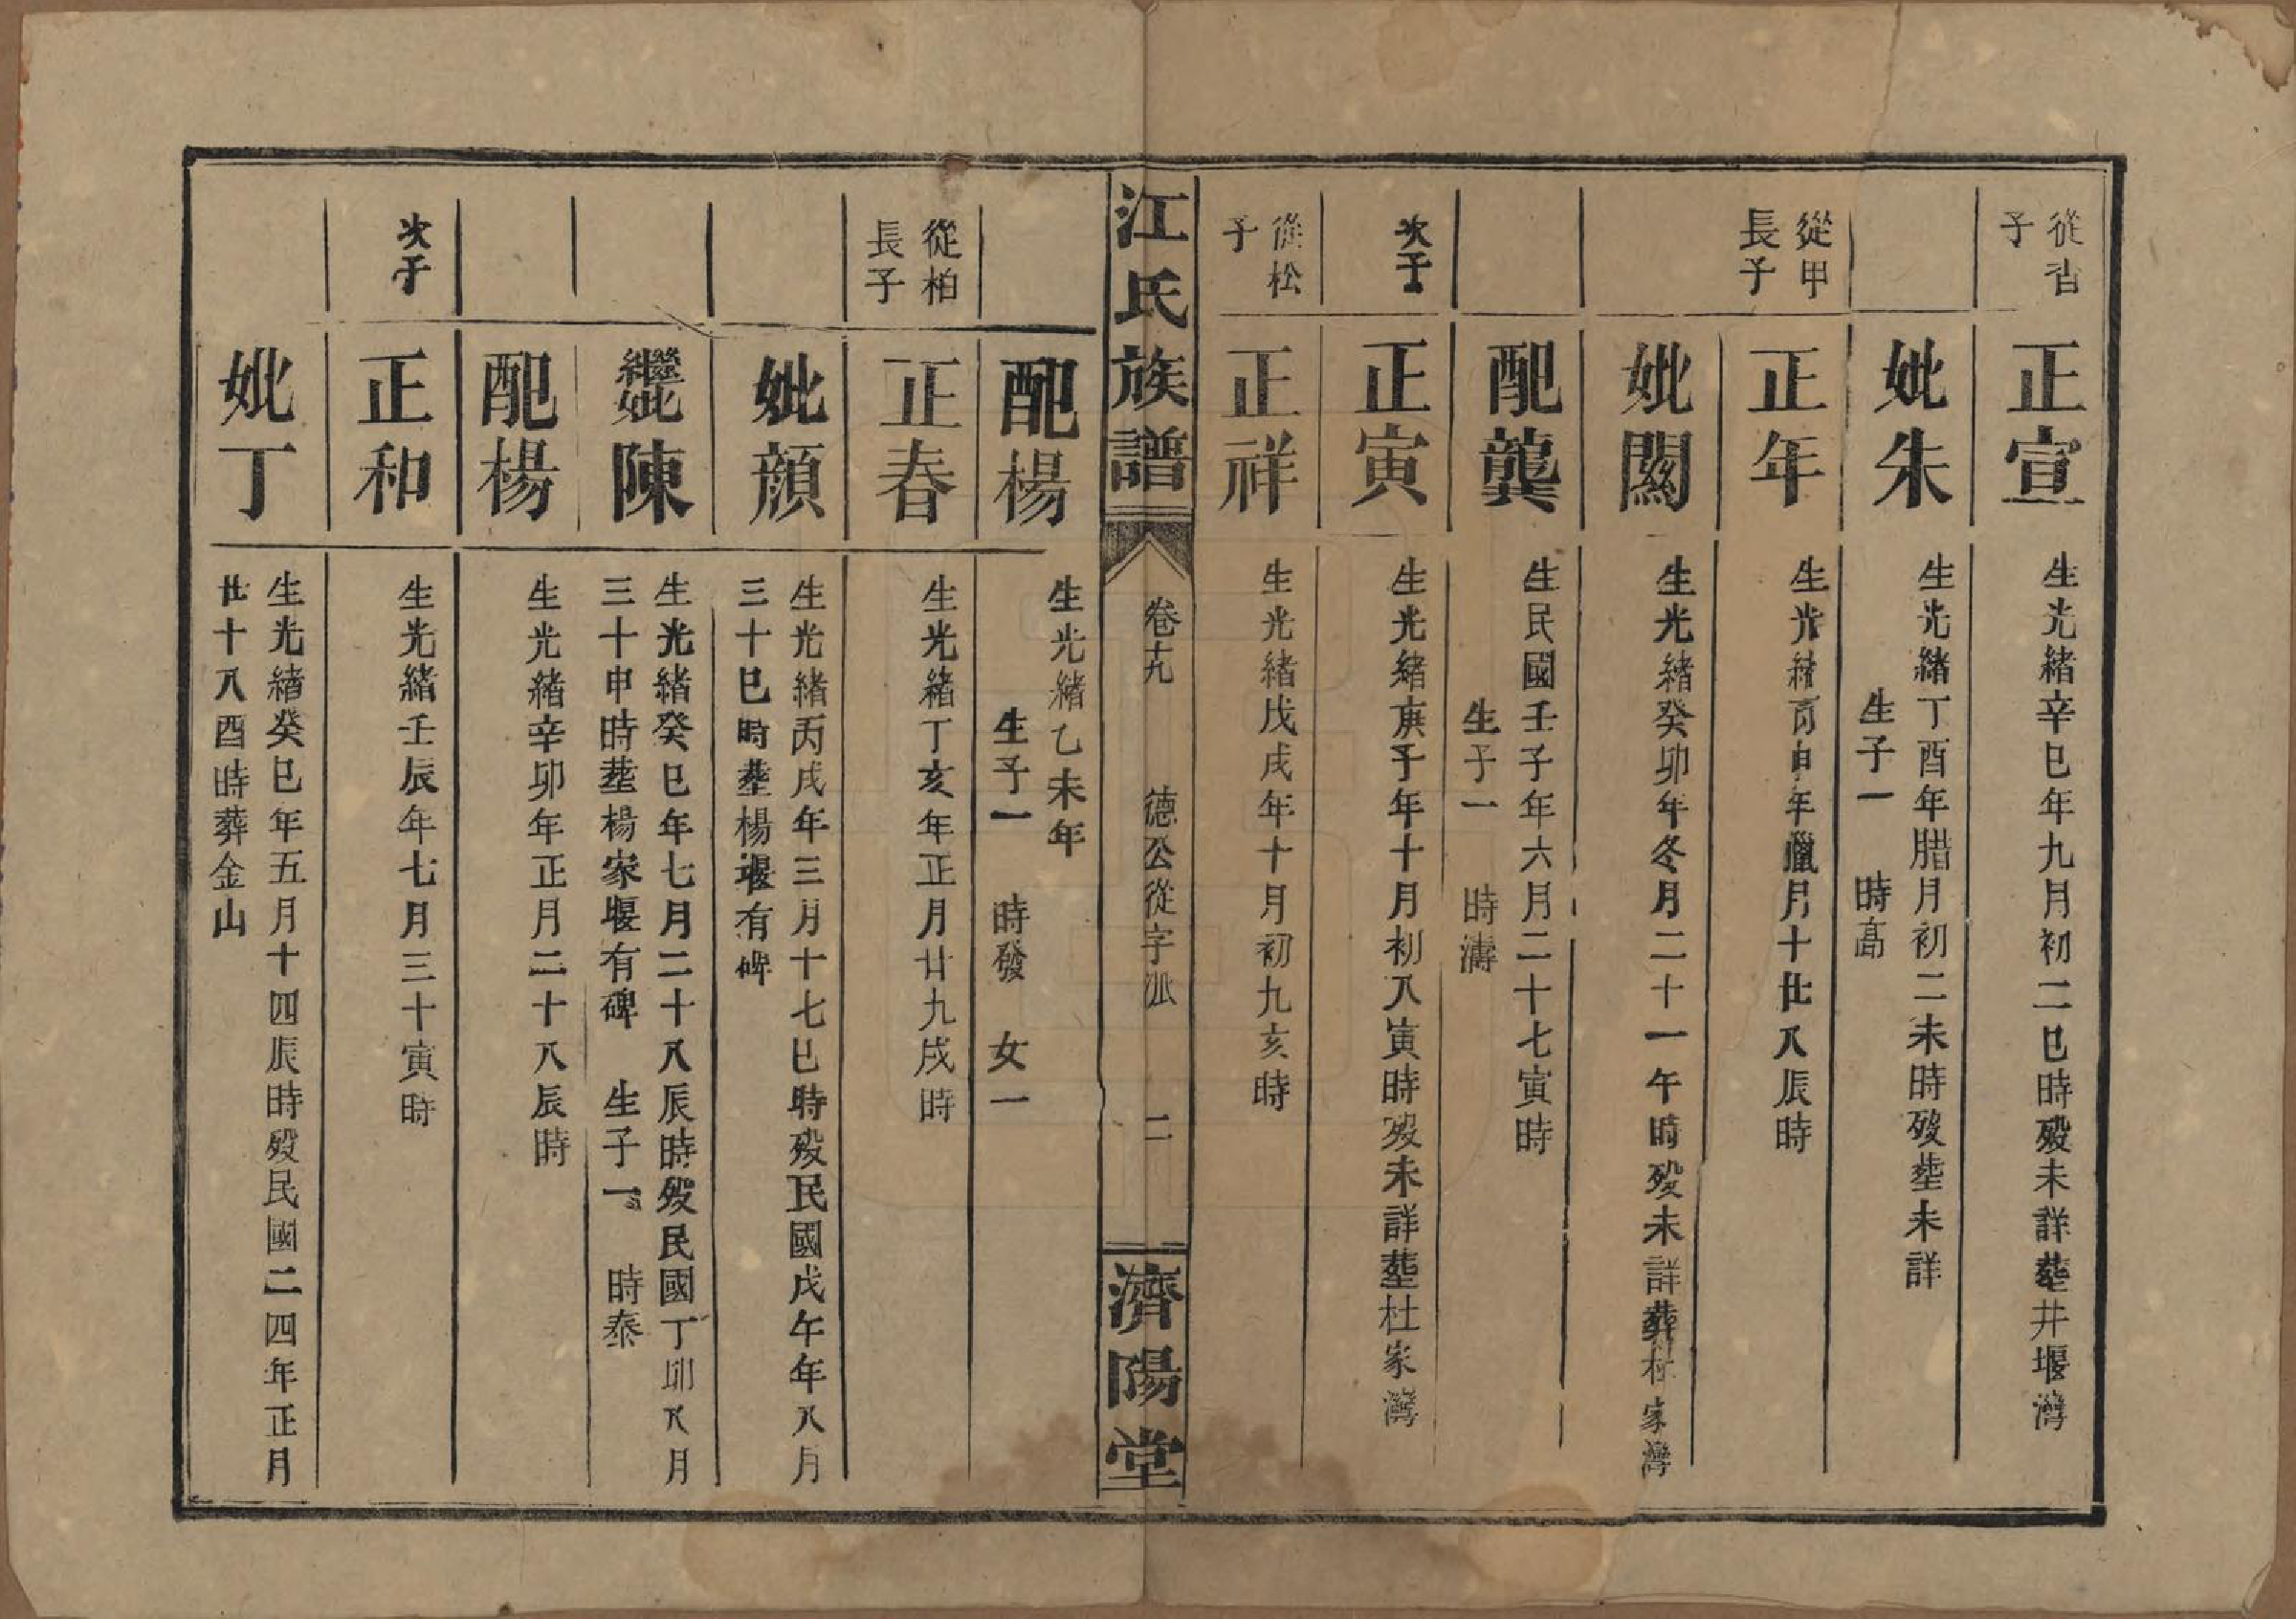 從
子
正宣
生光緒辛巳年九月初二巳時殁未詳塟井堰灣
妣朱
生光緒丁酉年腊月初二未時殁塟未詳
生子一　時高
從甲
長子
正年
生光緒丙申年臘月十廿八辰時
妣闕
生光緒癸卯年冬月二十一午時殁未詳葬杜家灣
配龔
生民國壬子年六月二十七寅時
生子一　時濤
次子
正寅
生光緒庚子年十月初八寅時殁未詳塟杜家灣
從松
子
正祥
生光緒戊戌年十月初九亥時
江氏族譜
卷十九
德公從字派
二
濟陽堂
配楊
生光緒乙未年
生子一　時發　女一
從柏
長子
正春
生光緒丁亥年正月廿九戌時
妣顔
生光緒丙戌年三月十七巳時殁民國戊午年八月
三十巳時塟楊堰有碑
繼妣陳
生光緒癸巳年七月二十八辰時殁民國丁卯八月
三十申時塟楊家堰有碑　生子一　時泰
配楊
生光緒辛卯年正月二十八辰時
次子
正和
生光緒壬辰年七月三十寅時
妣丁
生光緒癸巳年五月十四辰時殁民國二四年正月
廿十八酉時葬金山